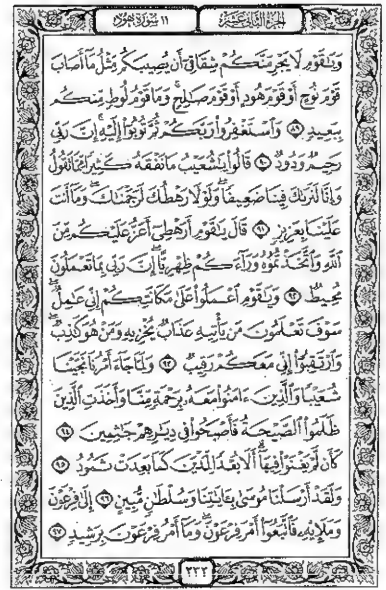 الجزء الثاني عشر
١١ سورة هود
وَيَٰقَوْمِ لَا يَجْرِمَنَّكُمْ شِقَاقِيٓ أَن يُصِيبَكُم مِّثْلُ مَآ أَصَابَ
قَوْمَ نُوحٍ أَوْ قَوْمَ هُودٍ أَوْ قَوْمَ صَٰلِحٍۚ وَمَا قَوْمُ لُوطٍ مِّنكُم
بِبَعِيدٍ ٨٩ وَٱسْتَغْفِرُواْ رَبَّكُمْ ثُمَّ تُوبُوٓاْ إِلَيْهِۚ إِنَّ رَبِّي
رَحِيمٌ وَدُودٌ ٩٠ قَالُواْ يَٰشُعَيْبُ مَا نَفْقَهُ كَثِيرًا مِّمَّا تَقُولُ
وَإِنَّا لَنَرَىٰكَ فِينَا ضَعِيفًاۖ وَلَوْلَا رَهْطُكَ لَرَجَمْنَٰكَۖ وَمَآ أَنتَ
عَلَيْنَا بِعَزِيزٍ ٩١ قَالَ يَٰقَوْمِ أَرَهْطِيٓ أَعَزُّ عَلَيْكُم مِّنَ
ٱللَّهِ وَٱتَّخَذْتُمُوهُ وَرَآءَكُمْ ظِهْرِيًّاۖ إِنَّ رَبِّي بِمَا تَعْمَلُونَ
مُحِيطٌ ٩٢ وَيَٰقَوْمِ ٱعْمَلُواْ عَلَىٰ مَكَانَتِكُمْ إِنِّي عَٰمِلٌۖ
سَوْفَ تَعْلَمُونَ مَن يَأْتِيهِ عَذَابٌ يُخْزِيهِ وَمَنْ هُوَ كَٰذِبٌۖ
وَٱرْتَقِبُوٓاْ إِنِّي مَعَكُمْ رَقِيبٌ ٩٣ وَلَمَّا جَآءَ أَمْرُنَا نَجَّيْنَا
شُعَيْبًا وَٱلَّذِينَ ءَامَنُواْ مَعَهُۥ بِرَحْمَةٍ مِّنَّا وَأَخَذَتِ ٱلَّذِينَ
ظَلَمُواْ ٱلصَّيْحَةُ فَأَصْبَحُواْ فِي دِيَٰرِهِمْ جَٰثِمِينَ ٩٤
كَأَن لَّمْ يَغْنَوْاْ فِيهَآۗ أَلَا بُعْدًا لِّمَدْيَنَ كَمَا بَعِدَتْ ثَمُودُ ٩٥
وَلَقَدْ أَرْسَلْنَا مُوسَىٰ بِـَٔايَٰتِنَا وَسُلْطَٰنٍ مُّبِينٍ ٩٦ إِلَىٰ فِرْعَوْنَ
وَمَلَإِيْهِۦ فَٱتَّبَعُوٓاْ أَمْرَ فِرْعَوْنَۖ وَمَآ أَمْرُ فِرْعَوْنَ بِرَشِيدٍ ٩٧
٢٣٢